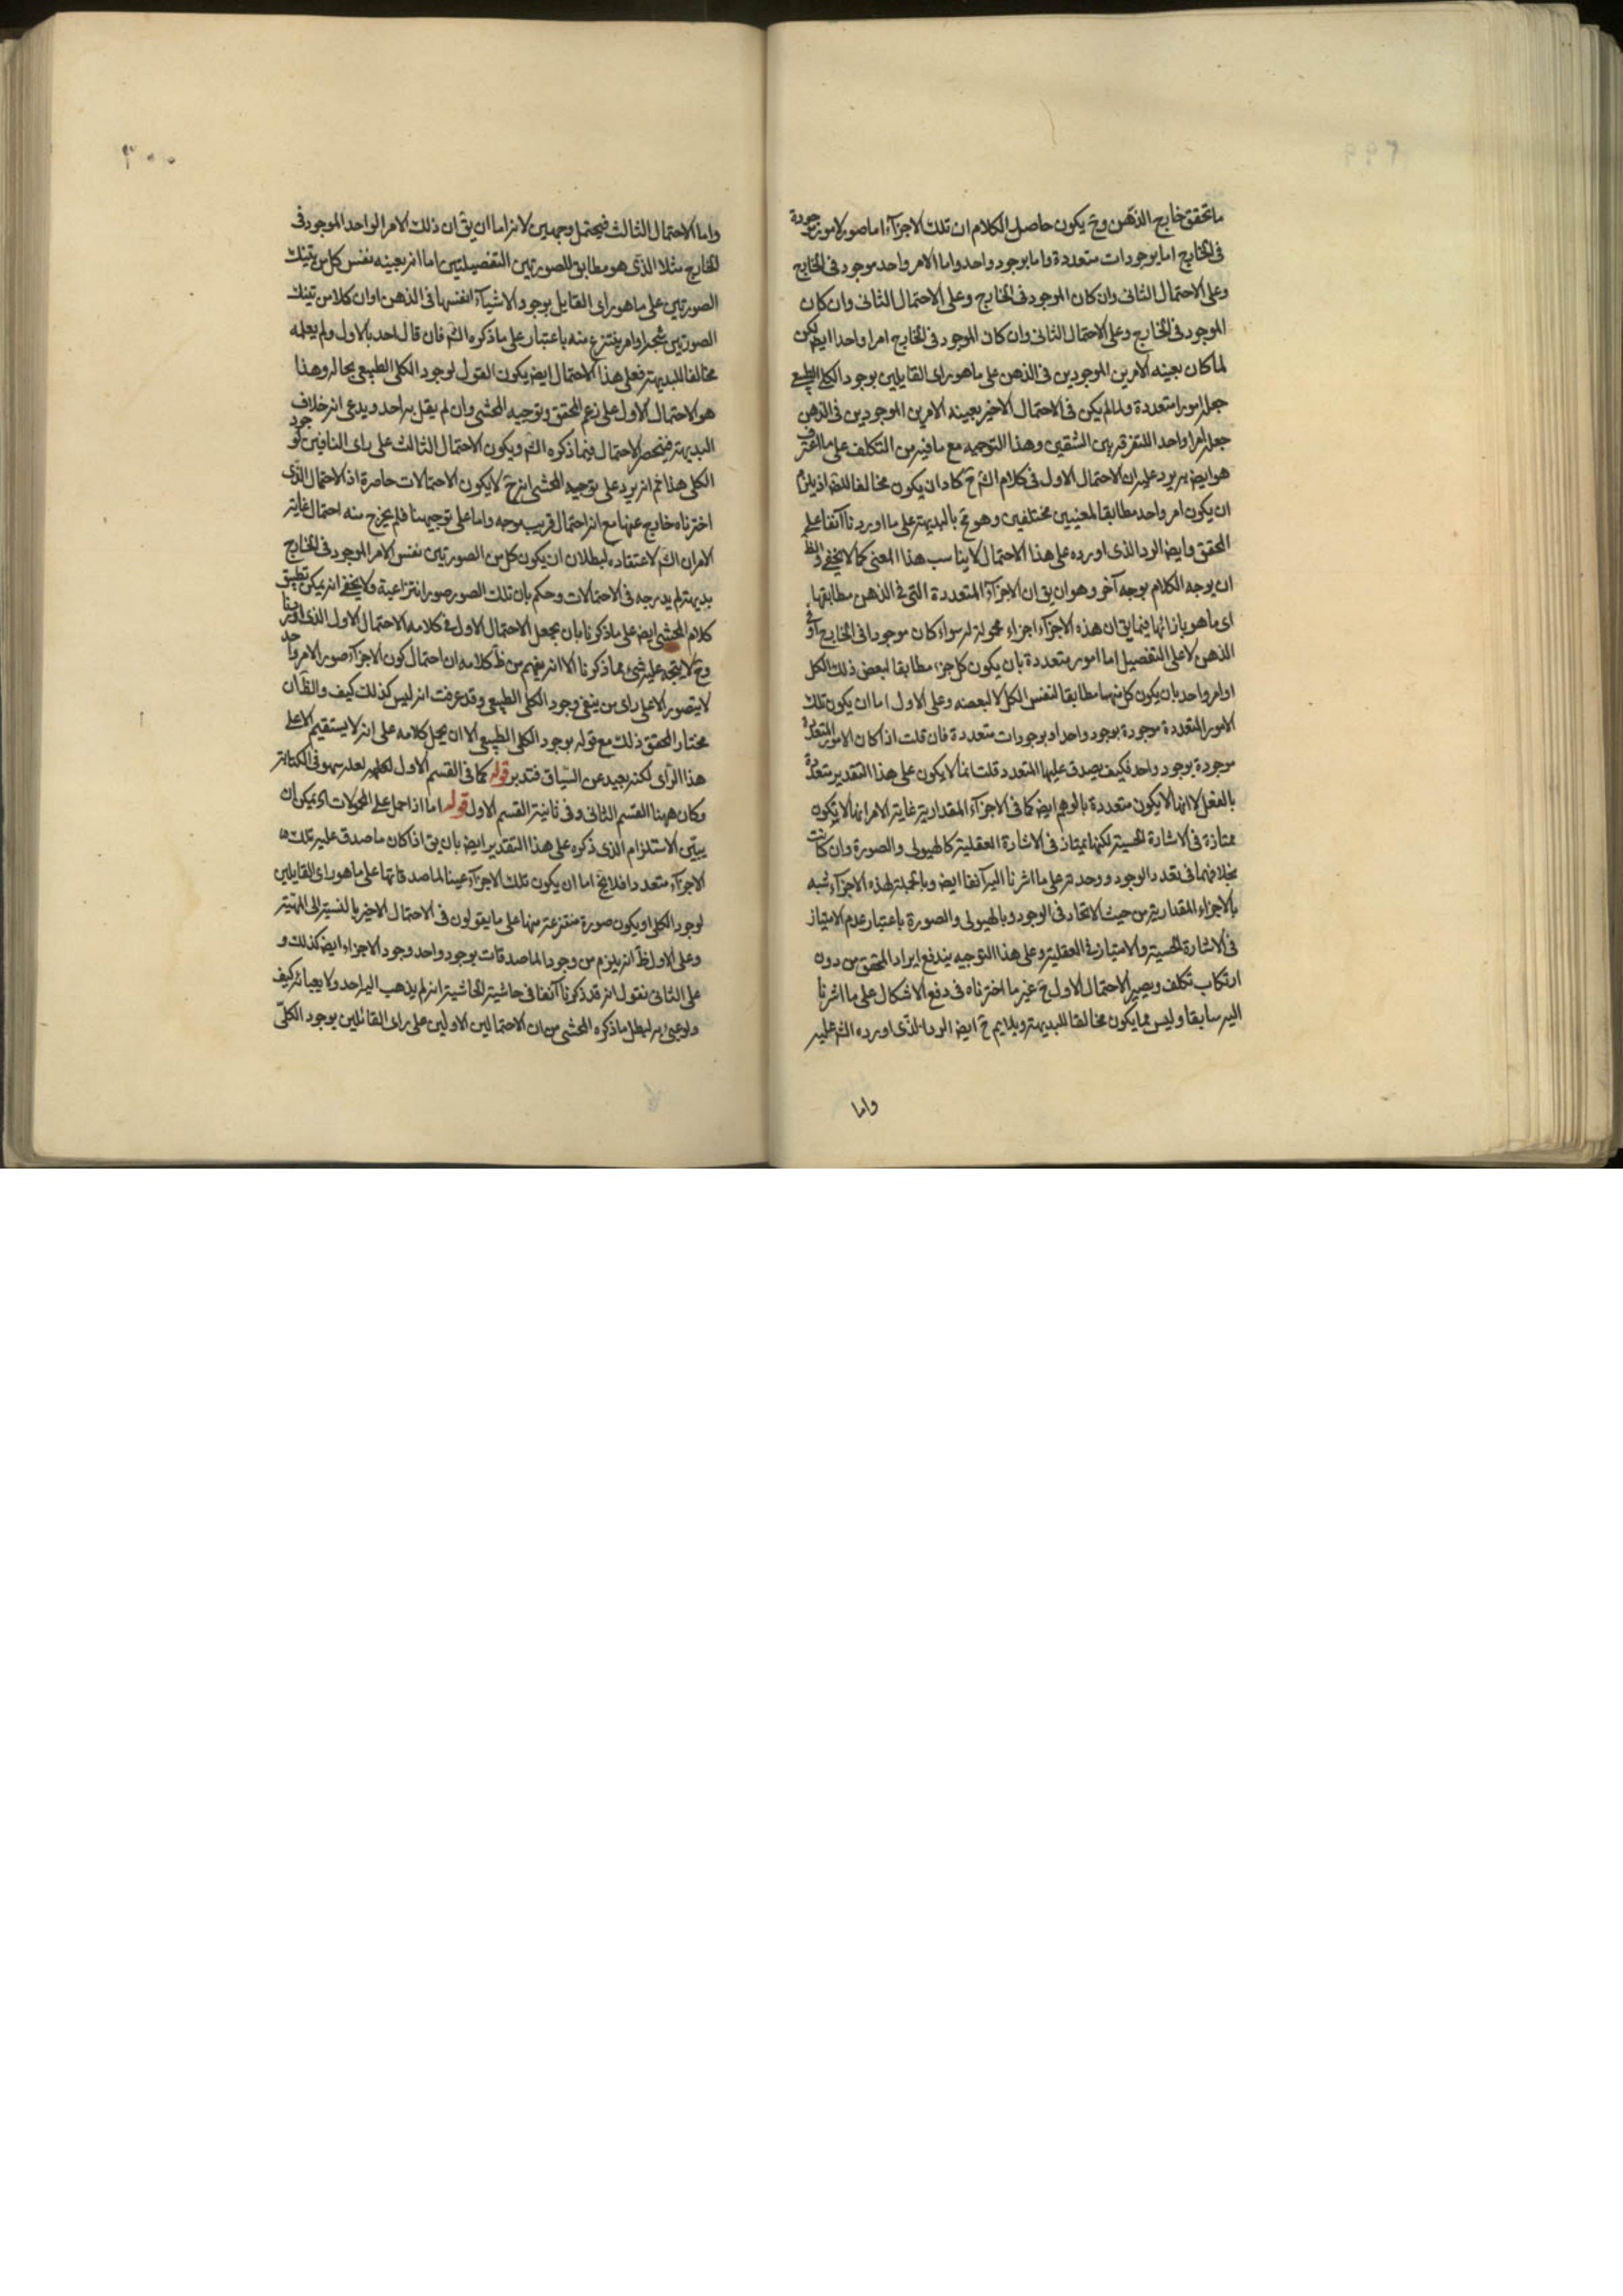 ٢٩٩
ما تحقق خارج الذهن وح يكون حاصل الكلام ان تلك الاجزآء اما صور لامور موجودة
فى الخارج اما بوجودات متعددة واما بوجود واحد واما الامر واحد موجود فى الخارج
وعلى الاحتمال الثانى وان كان الموجود فى الخارج وعلى الاحتمال الثانى وان كان
الموجود فى الخارج وعلى الاحتمال الثانى وان كان الموجود فى الخارج امرا واحدا ايض لكن
لما كان بعينه الامرين الموجودين فى الذهن على ما هو راى القايلين بوجود الكلى الطبيعى
جعل امورا متعددة ولما لم يكن فى الاحتمال الاخير بعينه الامرين الموجودين فى الذهن
جعل امرا واحدا للتفرقة بين الشقين وهذا التوجيه مع ما فيه من التكلف على ما اعترف
هو ايض به يرد عليه ان الاحتمال الاول فى كلام الش ح كاد ان يكون مخالفا للبداهة اذ يلزم
ان يكون امر واحد مطابقا لمعنيين مختلفين وهو مح بالبديهة على ما اوردنا آنفا على
المحقق وايض الرد الذى اورده على هذا الاحتمال لا يناسب هذا المعنى كما لا يخفى والظ
ان يوجه الكلام بوجه آخر وهو ان يق ان الاجزآء المتعددة التى فى الذهن مطابقها
اى ما هو بازائها فيما يق ان هذه الاجزآء اجزاء محمولة له سواء كان موجودا فى الخارج او فى
الذهن لا على التفصيل اما امور متعددة بان يكون كل جزء مطابقا لبعض ذلك الكل
او امر واحد بان يكون كل منها مطابقا لنفس الكل لا لبعضه وعلى الاول اما ان يكون تلك
الامور المتعددة موجودة بوجود واحد او بوجودات متعددة فان قلت اذا كان الامور المتعددة
موجودة بوجود واحد فكيف يصدق عليها المتعدد قلت انما لا يكون على هذا التقدير متعددة
بالفعل لا انها لا يكون متعددة بالوهم ايض كما فى الاجزآء المقدارية غاية الامر انها لا يكون
ممتازة فى الاشارة الحسية لكنها يمتاز فى الاشارة العقلية كالهيولى والصورة وان كانت
بخلافهما فى تعدد الوجود ووحدته على ما اشرنا اليه آنفا ايض وبالجملة لهذه الاجزآء شبه
بالاجزاء المقدارية من حيث الاتحاد فى الوجود وبالهيولى والصورة باعتبار عدم الامتياز
فى الاشارة الحسية والامتياز فى العقلية وعلى هذا التوجيه يندفع ايراد المحقق من دون
ارتكاب تكلف ويصير الاحتمال الاول ح غير ما اخترناه فى دفع الاشكال على ما اشرنا
اليه سابقا وليس مما يكون مخالفا للبديهة ويلايم ح ايض الرد الذى اورده الش عليه
واما
٣٠٠
واما الاحتمال الثالث فيحتمل وجهين لانه اما ان يق ان ذلك الامر الواحد الموجود فى
الخارج مثلا الذى هو مطابق للصورتين التفصيليتين اما انه بعينه نفس كل من تينك
الصورتين على ما هو راى القايل بوجود الاشيآء انفسها فى الذهن او ان كلا من تينك
الصورتين شبح له او امر ينتزع منه باعتبار على ما ذكره الش فان قال احد بالاول ولم يعده
مخالفا للبديهة فعلى هذا الاحتمال ايض يكون القول لوجود الكلى الطبيعى بحاله وهذا
هو الاحتمال الاول على زعم المحقق وتوجيه المحشى وان لم يقل به احد ويدعى انه خلاف
البديهة فينحصر الاحتمال فيما ذكره الش ويكون الاحتمال الثالث على راى النافين لوجود
الكلى هذا ثم انه يرد على توجيه المحشى انه ح لا يكون الاحتمالات حاصرة اذ الاحتمال الذى
اخترناه خارج عنها مع انه احتمال قريب موجه واما على توجيهنا فلم يخرج منه احتمال غاية
الامر ان الش لاعتقاده لبطلان ان يكون كل من الصورتين نفس الامر الموجود فى الخارج
بديهة لم يدرجه فى الاحتمالات وحكم بان تلك الصور صور انتزاعية ولا يخفى انه يمكن تطبيق
كلام المحشى ايض على ما ذكرنا بان يجعل الاحتمال الاول فى كلامه الاحتمال الاول الذى
وح لا يتجه عليه شىء مما ذكرنا الا انه يفهم من ظ كلامه ان احتمال كون الاجزآء صورا لامر واحد
لا يتصور الا على راى من ينفى وجود الكلى الطبيعى وقد عرفت انه ليس كذلك كيف والظ ان
مختار المحقق ذلك مع قوله بوجود الكلى الطبيعى الا ان يحمل كلامه على انه لا يستقيم الا على
هذا الرأى لكنه بعيد عن السياق فتدبر قوله كما فى القسم الاول لعله سهو فى الكتابة
وكان ههنا القسم الثانى وفى ثانية القسم الاول قوله اما اذا حمل على المحمولات اه يمكن ان
يبين الاستلزام الذى ذكره على هذا التقدير ايض بان يق اذا كان ما صدق عليه تلك
الاجزآء متعددا فلا يخ اما ان يكون تلك الاجزآء عينا لما صدقاتها على ما هو راى القايلين
لوجود الكلى او يكون صورة منتزعة منها على ما يقولون فى الاحتمال الاخير بالنسبة الى المهية
وعلى الاول ظ انه يلزم من وجود الماصدقات بوجود واحد وجود الاجزاء ايض كذلك و
على الثانى نقول انه قد ذكرنا آنفا فى حاشية الحاشية انه لم يذهب اليه احد ولا يعبأ به كيف
ولو عبئ به لبطل ما ذكره المحشى من ان الاحتمالين الاولين على راى القائلين بوجود الكلى